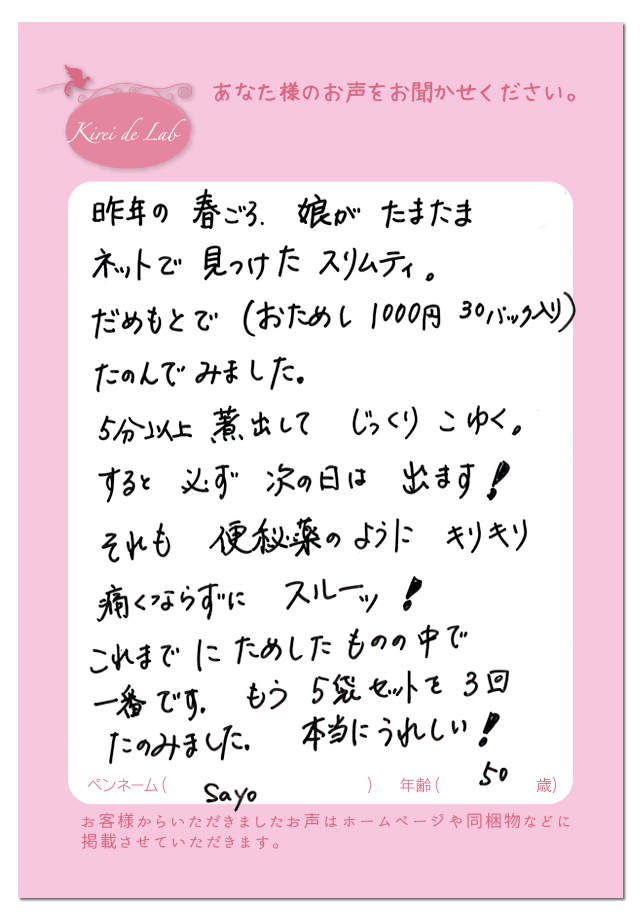 あなた様のお声をお聞かせください。
Kirei de Lab
昨年の 春ごろ、 娘が たまたま
ネットで 見つけた スリムティ。
だめもとで (おためし 1000円 30パック入り)
たのんで みました。
5分以上 煮出して じっくり こゆく。
すると 必ず 次の日は 出ます!
それも 便秘薬のように キリキリ
痛くならずに スルーッ!
これまでに ためした ものの 中で
一番です。 もう 5袋セットを 3回
たのみました。 本当にうれしい!
ペンネーム( Sayo ) 年齢( 50 歳)
お客様からいただきましたお声はホームページや同梱物などに
掲載させていただきます。